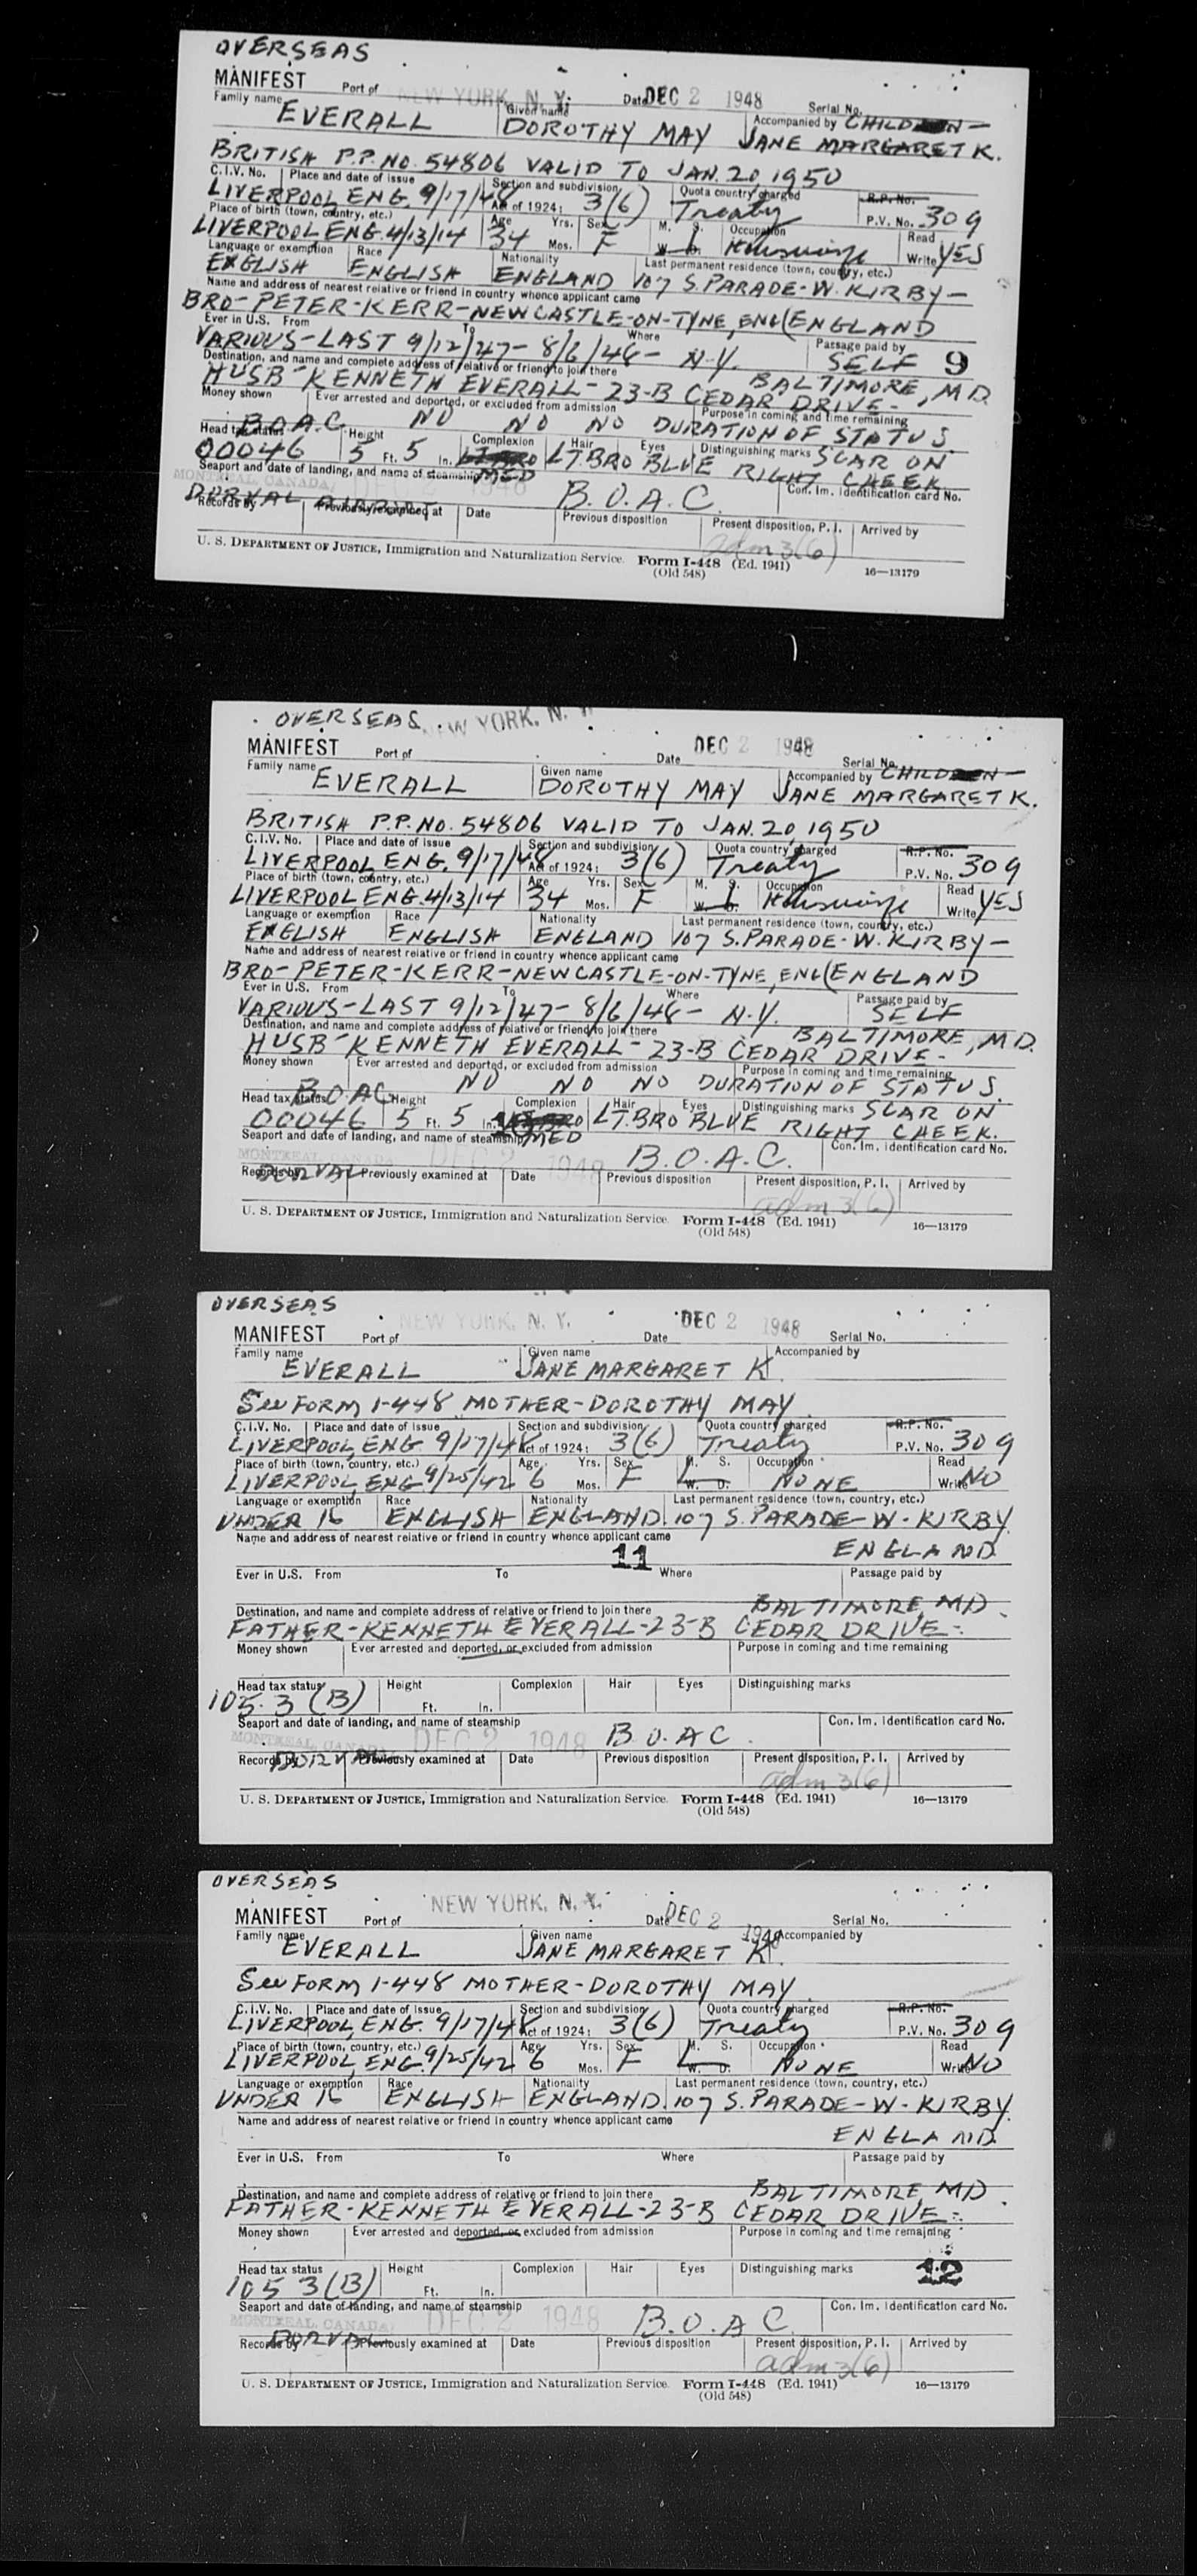 OVERSEAS
MANIFEST Port of NEW YORK, N. Y. Date DEC 2 1948 Serial No.
Family name EVERALL Given name DOROTHY MAY Accompanied by CHILD JANE MARGARET K.
BRITISH P.P. NO. 54806 VALID TO JAN. 20, 1950
C.I.V. No. Place and date of issue Section and subdivision Quota country charged R.P. No.
LIVERPOOL ENG. 9/17/48 Act of 1924: 3(6) Treaty P.V. No. 309
Place of birth (town, country, etc.) Age Yrs. Sex M. S. Occupation Read
LIVERPOOL ENG. 4/13/14 34 Mos. F W. D. Housewife Write YES
Language or exemption Race Nationality Last permanent residence (town, country, etc.)
ENGLISH ENGLISH ENGLAND 107 S. PARADE - W. KIRBY -
Name and address of nearest relative or friend in country whence applicant came
BRO - PETER - KERR - NEWCASTLE-ON-TYNE, ENG (ENGLAND
Ever in U.S. From To Where Passage paid by
VARIOUS - LAST 9/12/47 - 8/6/46 - N.Y. SELF 9
Destination, and name and complete address of relative or friend to join there BALTIMORE, MD.
HUSB - KENNETH EVERALL - 23-B CEDAR DRIVE -
Money shown Ever arrested and deported, or excluded from admission Purpose in coming and time remaining
B.O.A.C. NO NO NO DURATION OF STATUS
Head tax status Height Complexion Hair Eyes Distinguishing marks SCAR ON
00046 5 Ft. 5 In. MED LT. BRO BLUE RIGHT CHEEK
Seaport and date of landing, and name of steamship Con. Im. Identification card No.
MONTREAL, CANADA, DEC 2 1948 B.O.A.C.
DORVAL AIRPORT
Records by Previously examined at Date Previous disposition Present disposition, P. I. Arrived by
adm 3(6)
U. S. DEPARTMENT OF JUSTICE, Immigration and Naturalization Service. Form I-448 (Ed. 1941) 16—13179
(Old 548)
OVERSEAS NEW YORK, N. Y.
MANIFEST Port of Date DEC 2 1948 Serial No.
Family name EVERALL Given name DOROTHY MAY Accompanied by CHILD JANE MARGARET K.
BRITISH P.P. NO. 54806 VALID TO JAN. 20, 1950
C.I.V. No. Place and date of issue Section and subdivision Quota country charged R.P. No.
LIVERPOOL ENG. 9/17/48 Act of 1924: 3(6) Treaty P.V. No. 309
Place of birth (town, country, etc.) Age Yrs. Sex M. S. Occupation Read
LIVERPOOL ENG. 4/13/14 34 Mos. F W. D. Housewife Write YES
Language or exemption Race Nationality Last permanent residence (town, country, etc.)
ENGLISH ENGLISH ENGLAND 107 S. PARADE - W. KIRBY -
Name and address of nearest relative or friend in country whence applicant came
BRO - PETER - KERR - NEWCASTLE-ON-TYNE, ENG (ENGLAND
Ever in U.S. From To Where Passage paid by
VARIOUS - LAST 9/12/47 - 8/6/46 - N.Y. SELF
Destination, and name and complete address of relative or friend to join there BALTIMORE, MD.
HUSB - KENNETH EVERALL - 23-B CEDAR DRIVE -
Money shown Ever arrested and deported, or excluded from admission Purpose in coming and time remaining
BOAC NO NO NO DURATION OF STATUS.
Head tax status Height Complexion Hair Eyes Distinguishing marks SCAR ON
00046 5 Ft. 5 In. MED LT. BRO BLUE RIGHT CHEEK.
Seaport and date of landing, and name of steamship Con. Im. Identification card No.
MONTREAL, CANADA DEC 2 1948 B.O.A.C.
DORVAL
Records by Previously examined at Date Previous disposition Present disposition, P. I. Arrived by
adm 3(6)
U. S. DEPARTMENT OF JUSTICE, Immigration and Naturalization Service. Form I-448 (Ed. 1941) 16—13179
(Old 548)
OVERSEAS
MANIFEST Port of NEW YORK, N. Y. Date DEC 2 1948 Serial No.
Family name EVERALL Given name JANE MARGARET K Accompanied by
See FORM 1-448 MOTHER - DOROTHY MAY
C.I.V. No. Place and date of issue Section and subdivision Quota country charged R.P. No.
LIVERPOOL, ENG. 9/17/48 Act of 1924: 3(6) Treaty P.V. No. 309
Place of birth (town, country, etc.) Age Yrs. Sex M. S. Occupation Read
LIVERPOOL ENG 9/25/42 6 Mos. F W. D. NONE Write NO
Language or exemption Race Nationality Last permanent residence (town, country, etc.)
UNDER 16 ENGLISH ENGLAND. 107 S. PARADE - W. KIRBY.
Name and address of nearest relative or friend in country whence applicant came
11 ENGLAND
Ever in U.S. From To Where Passage paid by
Destination, and name and complete address of relative or friend to join there BALTIMORE, MD.
FATHER - KENNETH EVERALL - 23-B CEDAR DRIVE -
Money shown Ever arrested and deported, or excluded from admission Purpose in coming and time remaining
Head tax status Height Complexion Hair Eyes Distinguishing marks
105.3 (B) Ft. In.
Seaport and date of landing, and name of steamship Con. Im. Identification card No.
MONTREAL, CANADA, DEC 2 1948 B.O.AC.
DORVAL
Records by Previously examined at Date Previous disposition Present disposition, P. I. Arrived by
adm 3(6)
U. S. DEPARTMENT OF JUSTICE, Immigration and Naturalization Service. Form I-448 (Ed. 1941) 16—13179
(Old 548)
OVERSEAS
MANIFEST Port of NEW YORK, N. Y. Date DEC 2 1948 Serial No.
Family name EVERALL Given name JANE MARGARET K Accompanied by
See FORM 1-448 MOTHER - DOROTHY MAY
C.I.V. No. Place and date of issue Section and subdivision Quota country charged R.P. No.
LIVERPOOL, ENG. 9/17/48 Act of 1924: 3(6) Treaty P.V. No. 309
Place of birth (town, country, etc.) Age Yrs. Sex M. S. Occupation Read
LIVERPOOL, ENG 9/25/42 6 Mos. F W. D. NONE Write NO
Language or exemption Race Nationality Last permanent residence (town, country, etc.)
UNDER 16 ENGLISH ENGLAND. 107 S. PARADE - W. KIRBY.
Name and address of nearest relative or friend in country whence applicant came
ENGLAND
Ever in U.S. From To Where Passage paid by
Destination, and name and complete address of relative or friend to join there BALTIMORE, MD.
FATHER - KENNETH EVERALL - 23-B CEDAR DRIVE -
Money shown Ever arrested and deported, or excluded from admission Purpose in coming and time remaining
12
Head tax status Height Complexion Hair Eyes Distinguishing marks
105 3 (B) Ft. In.
Seaport and date of landing, and name of steamship Con. Im. Identification card No.
MONTREAL, CANADA, DEC 2 1948 B.O.A C.
DORVAL
Records by Previously examined at Date Previous disposition Present disposition, P. I. Arrived by
adm 3(6)
U. S. DEPARTMENT OF JUSTICE, Immigration and Naturalization Service. Form I-448 (Ed. 1941) 16—13179
(Old 548)